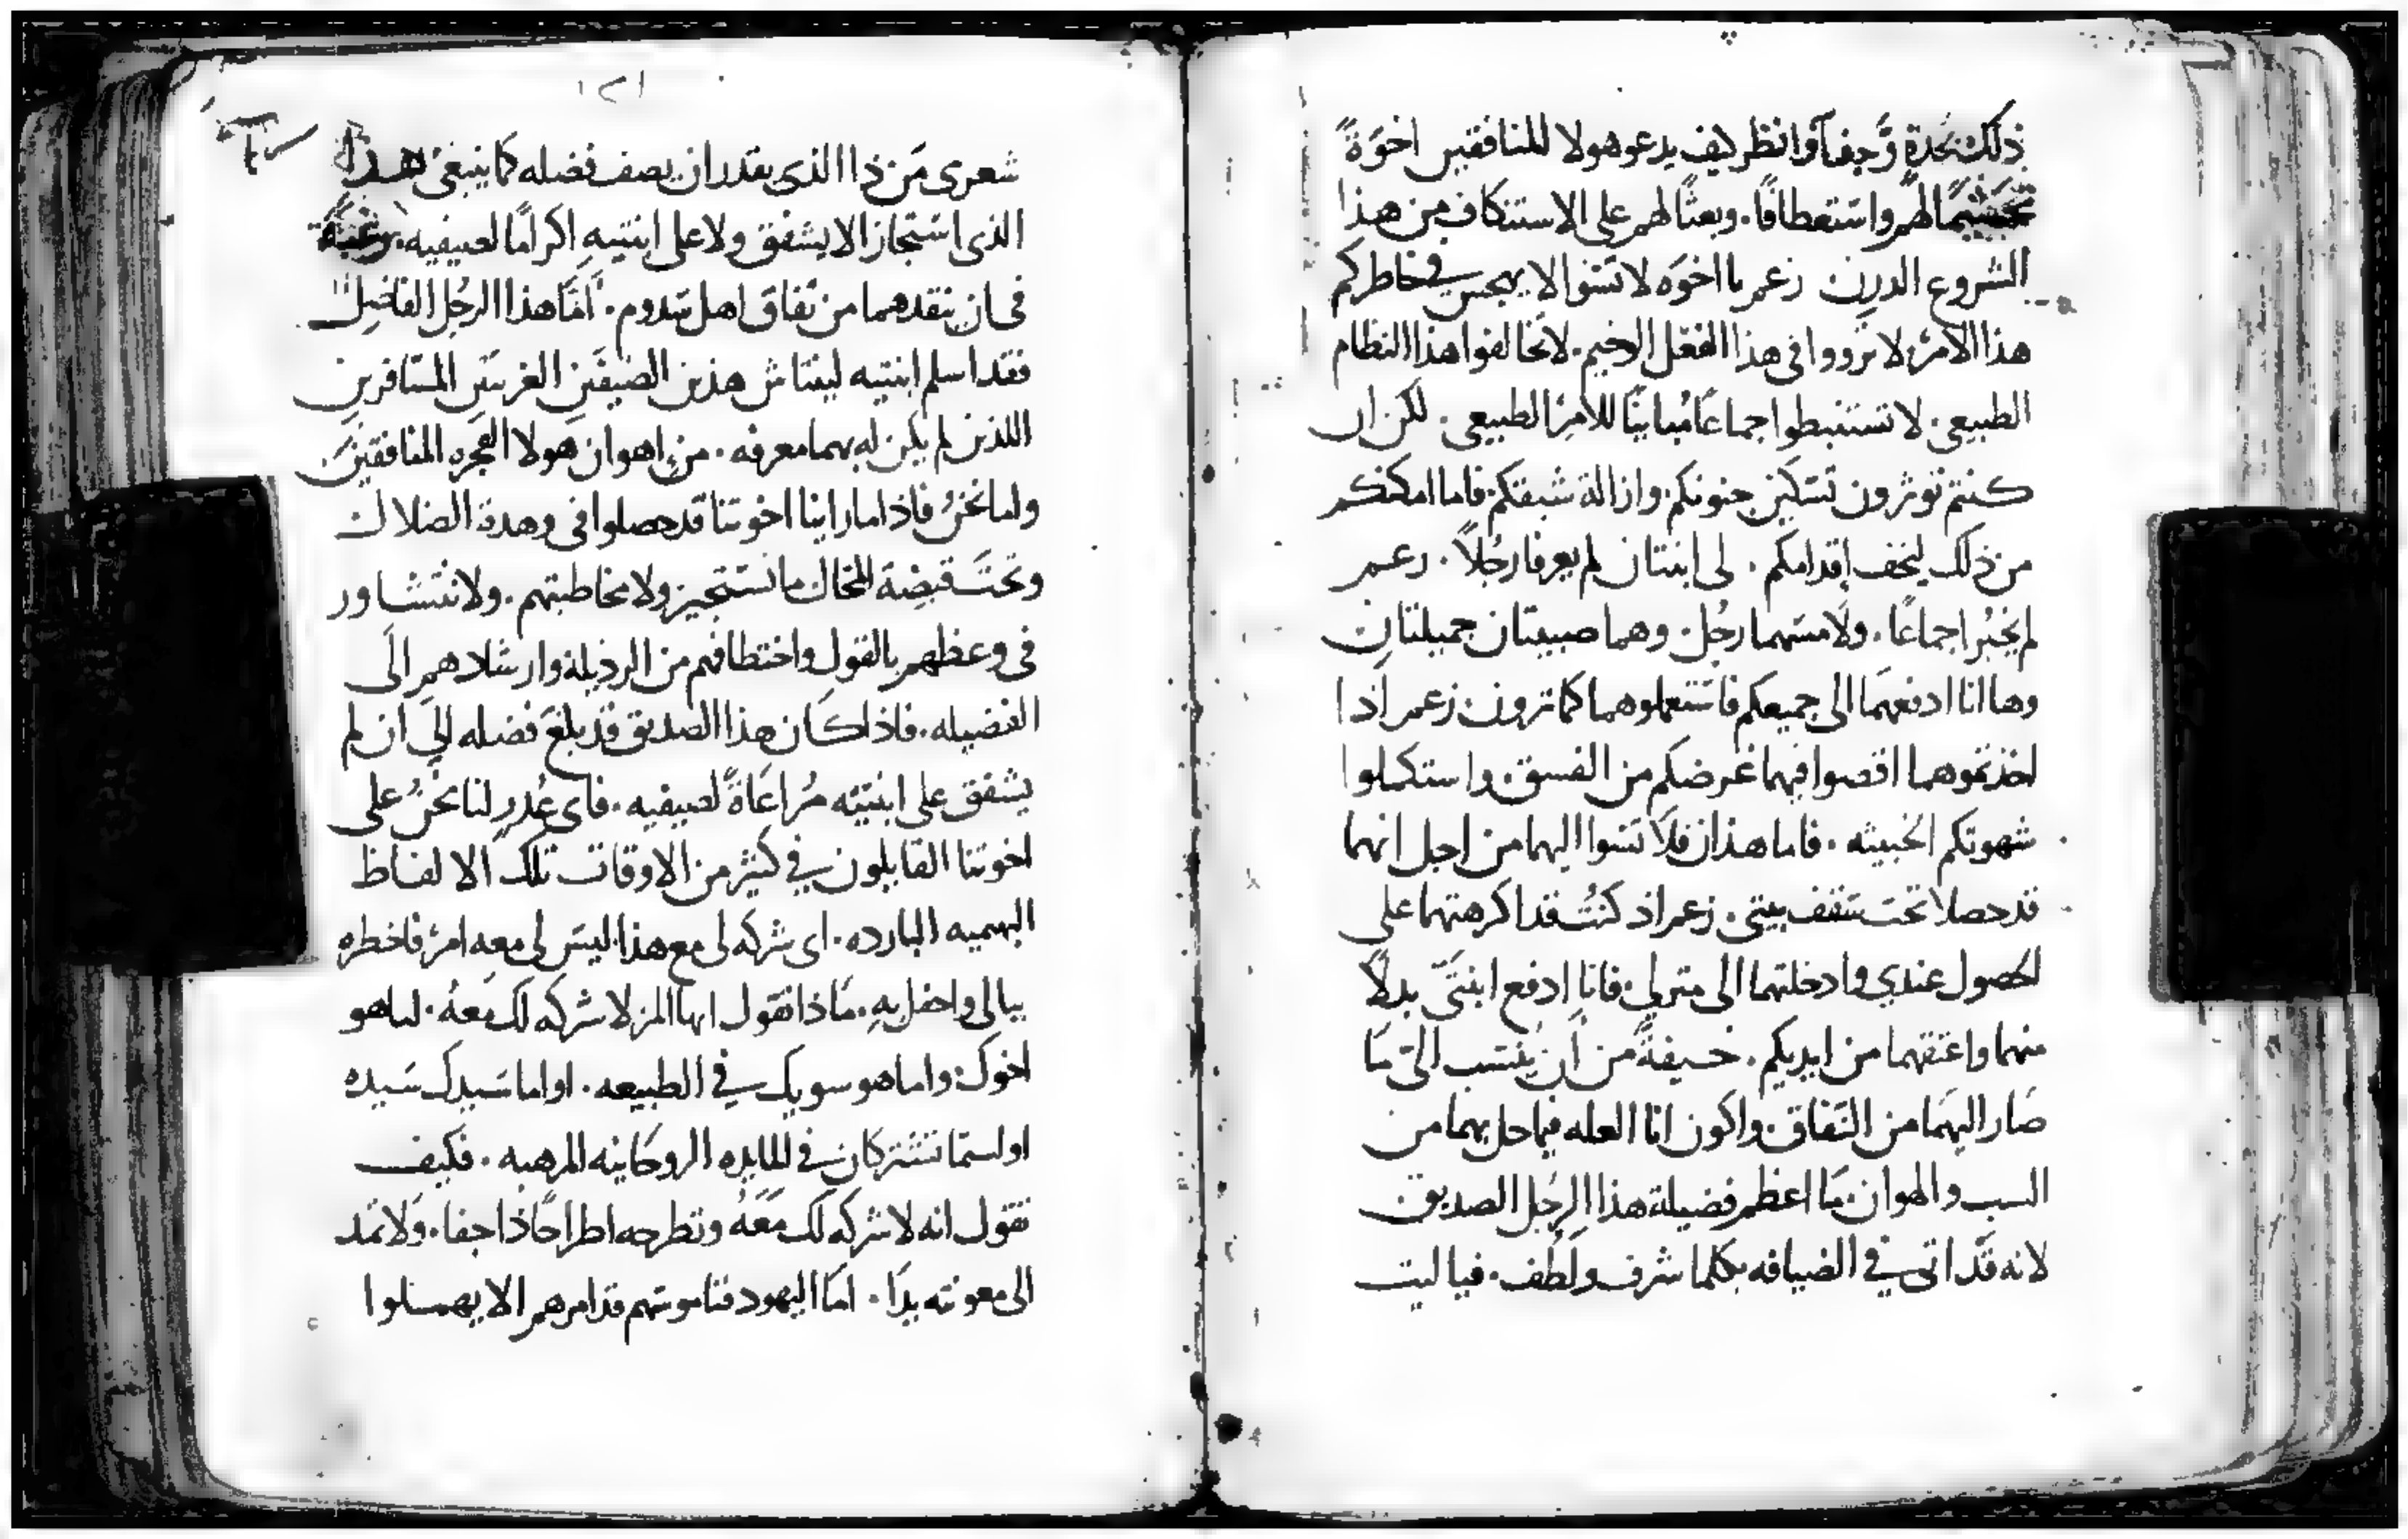 ذلك بحدة وجفا وانظر كيف يدعو هولا المنافقين اخوَةً
تخشيمًا لهم واستعطافًا. وبعثًا لهم على الاستنكاف من هذا
الشروع الدرن زعم يا اخوَه لا تسَوا الا يهجس في خاطركم
هذا الامر. لا ترووا في هذا الفعل الوخيم. لا تخالفوا هذا النظام
الطبيعي. لا تستنبطوا جماعًا مُباينًا للامرِ الطبيعي. لكن ان
كنتم توثرون تسَكين جنونكم. وازالة شبقكم. فاما امكنكم
من ذلك ليخف إقدامكم. لى ابنتان لم يعرفا رجُلاً. زعم
لم يخبُرا جماعًا. ولا مسَهما رجُل. وهما صبيتان جميلتان
وها انا ادفعهمَا الى جميعكم فاستَعملوهما كما ترون. زعم اذا
اخذتموهما اقصوا فيهما غرضكم من الفسق. واستكملوا
شهوتكم الخبيثه. فاما هذان فلا تسَوا اليهما من اجل انهما
قد حصلا تحت سَقف بيتى. زعم اذ كنتُ قد اكرهتهما على
الحصول عندي وادخلتهما الى منزلي. فانا ادفع ابنتَىّ بدلاً
منهما واعتقهما من ايديكم. خيفةً من أن يُنتسب الىّ مَا
صَار اليهمَا من النَفاق. واكون انا العله فيما حل بهما من
السب والهوان. مَا اعظم فضيلة هذا الرجُل الصديق
لانه قَد اتى في الضيافه بكلما شرف ولَطُف. فيا ليت
١٢١
شعرى مَن ذا الذى يقدر ان يصف فضله كما ينبغى هذا
الذى استَجاز الا يشفق ولا على ابنتيهِ اكرامًا لضيفيه. رغبَةً
فى ان ينقدهما من نَفاق اهل سَدوم. امَا هذا الرجُل الفاضِل
فقد اسلم ابنتيه لينتاش هذين الضيفَين الغريبَين المسَافرينِ
اللذين لم يكن له بهما معرفه. من اهوان هولا الفجره المنافقينَ.
واما نحنُ فاذا ما راينا اخوتنا قد حصلوا فى وهدة الضلال
وتحتَ قبضة المحال ما نستَجيز ولا مخاطبتهم. ولا نتشاور
فى وعظهم بالقول واختطافهم من الرذيله وارشادهم الَى
الفضيله. فاذا كان هذا الصديق قد بلغَ فضله الى ان لم
يشفق على ابنتيه مُراعَاةً لضيفيه. فاى عُدرٍ لنا نحنُ على
اخوتنا القايلون في كثير من الاوقات تلك الالفاظ
البهميه البارده. اى شركه لى مع هذا. ليسَ لى معه امرٌ فاخطره
ببالى واحفل بهِ. مَاذا تقول ايها المر لا شركه لك مَعهُ. اما هو
اخوك. واما هو سويك في الطبيعه. اواما سَيدك سَيده
اولستما تشتركان في المايده الروحَانيه المرهبه. فكيف
تقول انه لا شركه لك مَعَهُ وتطرحه اطراحًا ذا جفا. وَلا تمد
الى معونته يدَا. امَا اليهود فناموسَهم قد امرهم الا يهملوا